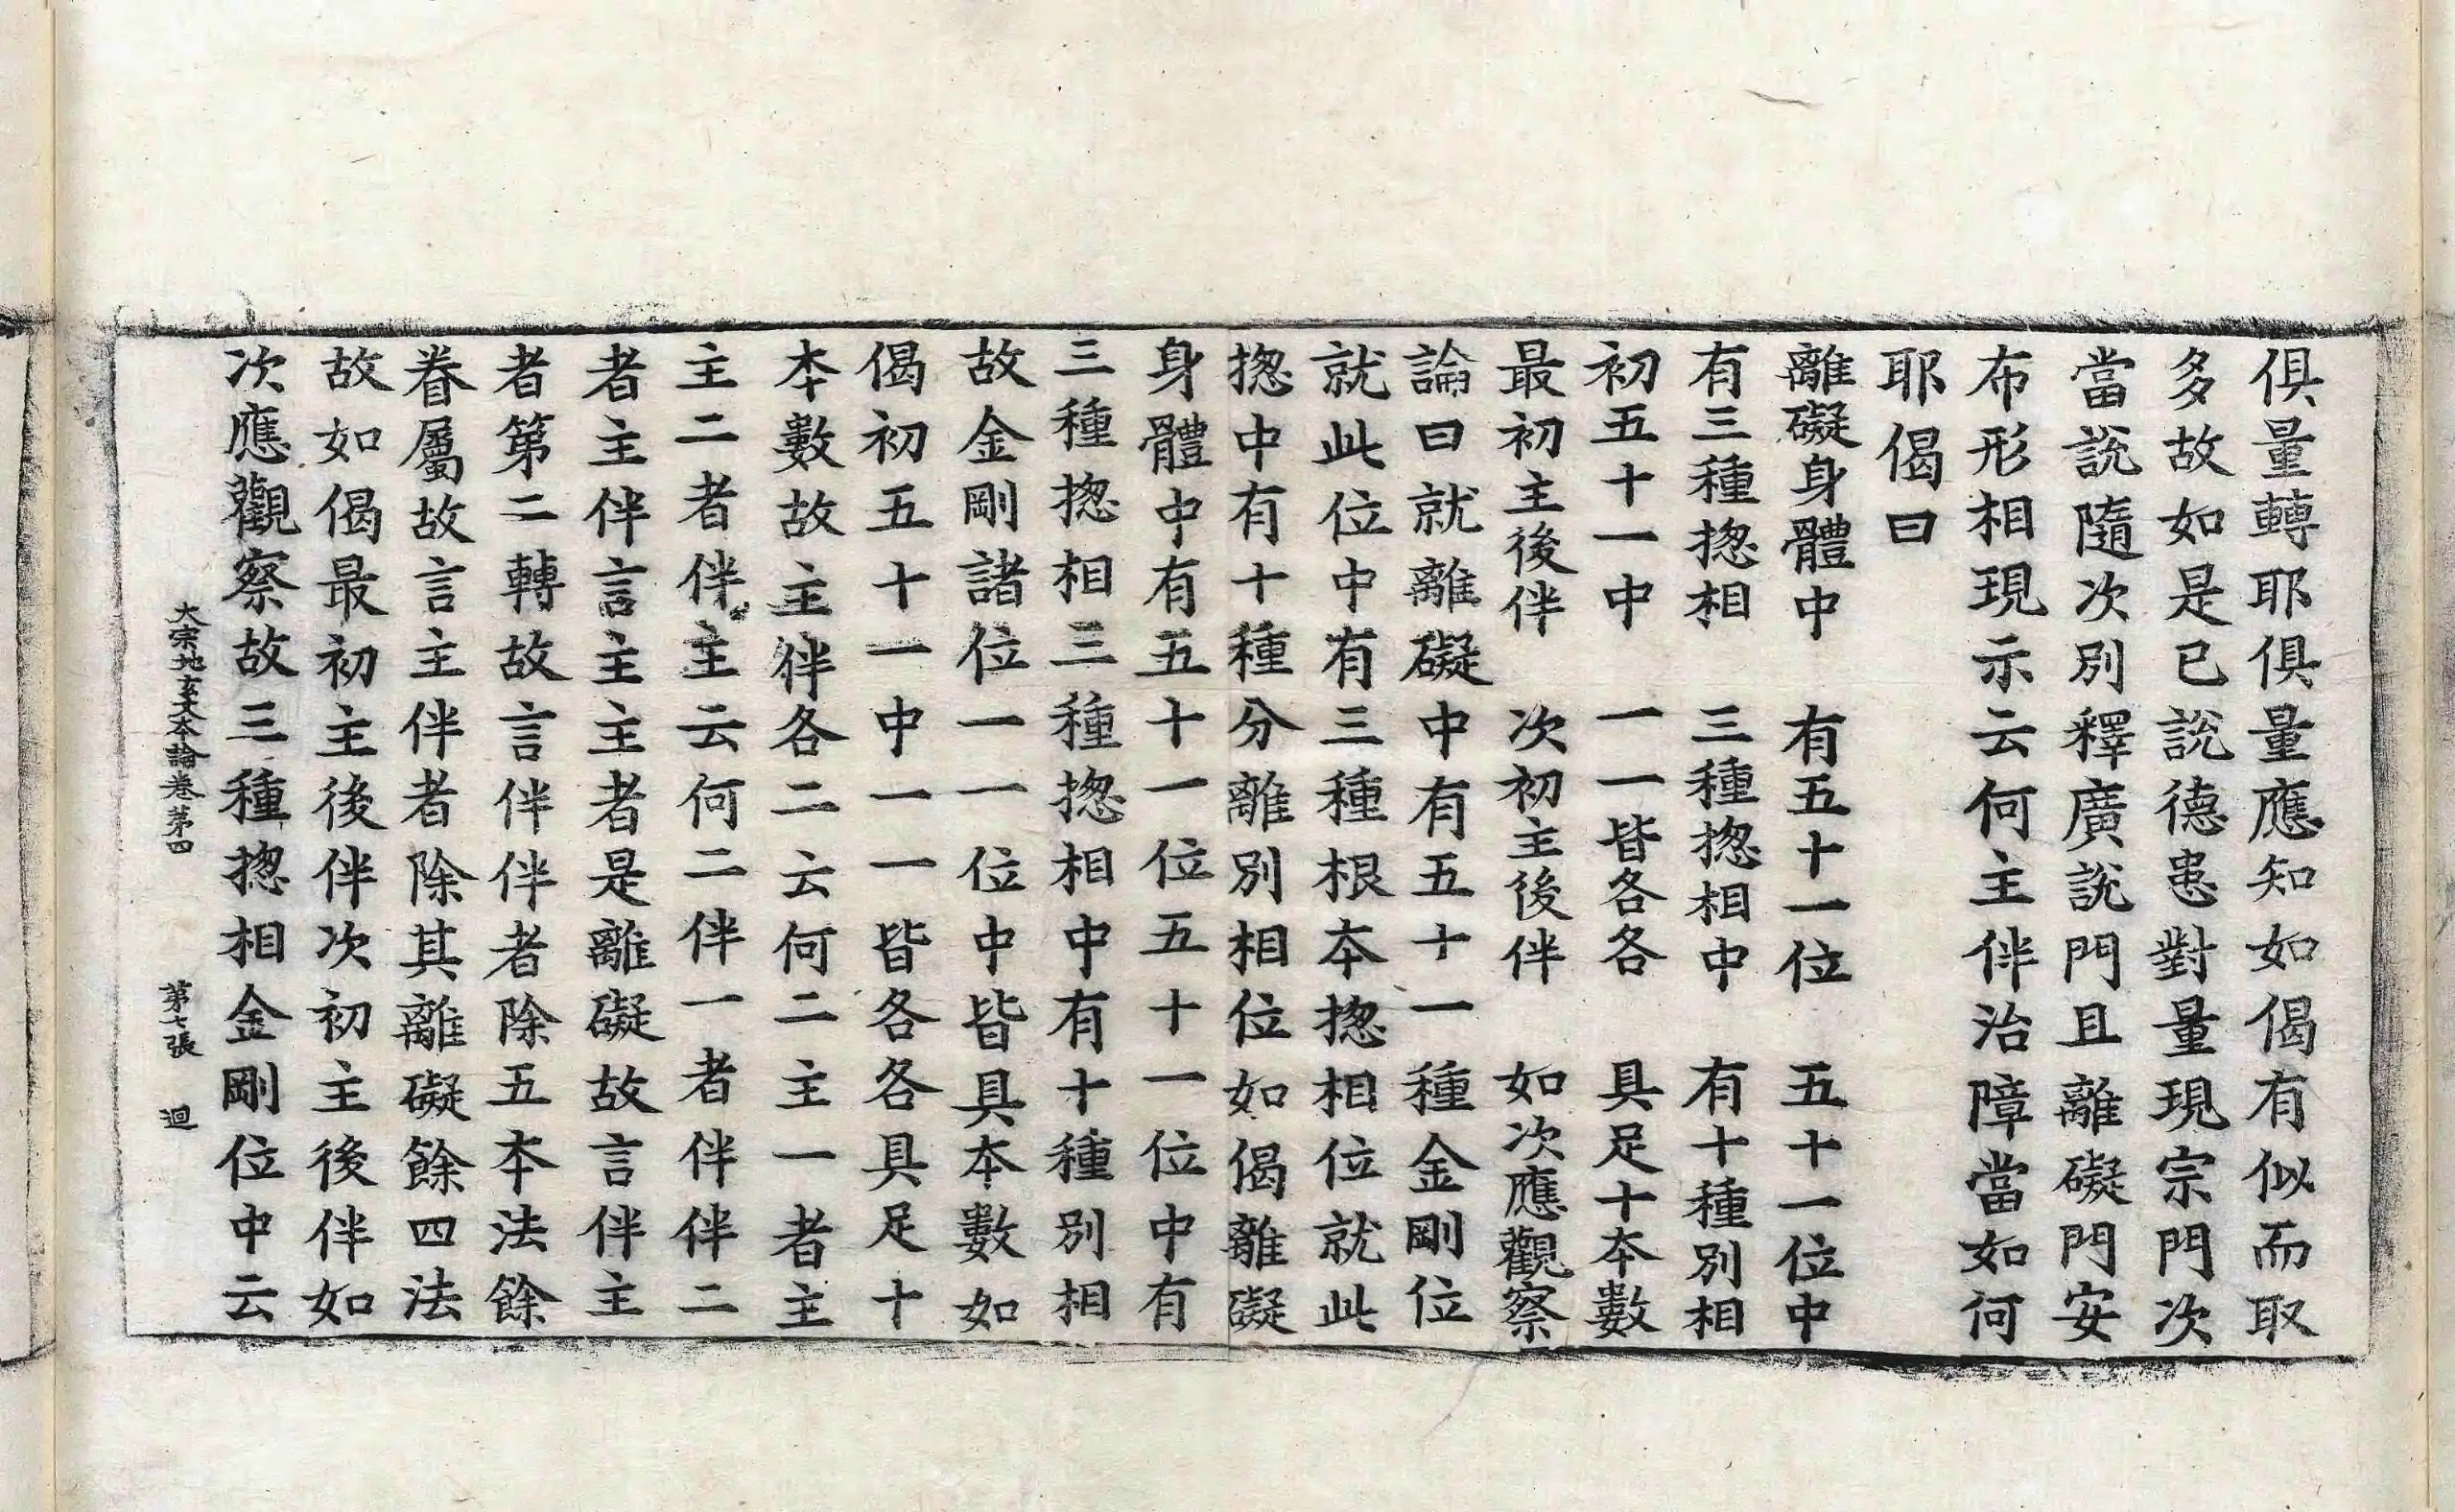 俱量轉耶俱量應知如偈有似而取
多故如是已說德患對量現宗門次
當說隨次別釋廣說門且離礙門安
布形相現示云何主伴治障當如何
耶偈曰
離礙身體中　有五十一位　五十一位中
有三種揔相　三種揔相中　有十種別相
初五十一中　一一皆各各　具足十本數
最初主後伴　次初主後伴　如次應觀察
論曰就離礙中有五十一種金剛位
就此位中有三種根本揔相位就此
揔中有十種分離別相位如偈離礙
身體中有五十一位五十一位中有
三種揔相三種揔相中有十種別相
故金剛諸位一一位中皆具本數如
偈初五十一中一一皆各各具足十
本數故主伴各二云何二主一者主
主二者伴主云何二伴一者伴伴二
者主伴言主主者是離礙故言伴主
者第二轉故言伴伴者除五本法餘
眷屬故言主伴者除其離礙餘四法
故如偈最初主後伴次初主後伴如
次應觀察故三種揔相金剛位中云
大宗地玄文本論卷第四　第七張　迴